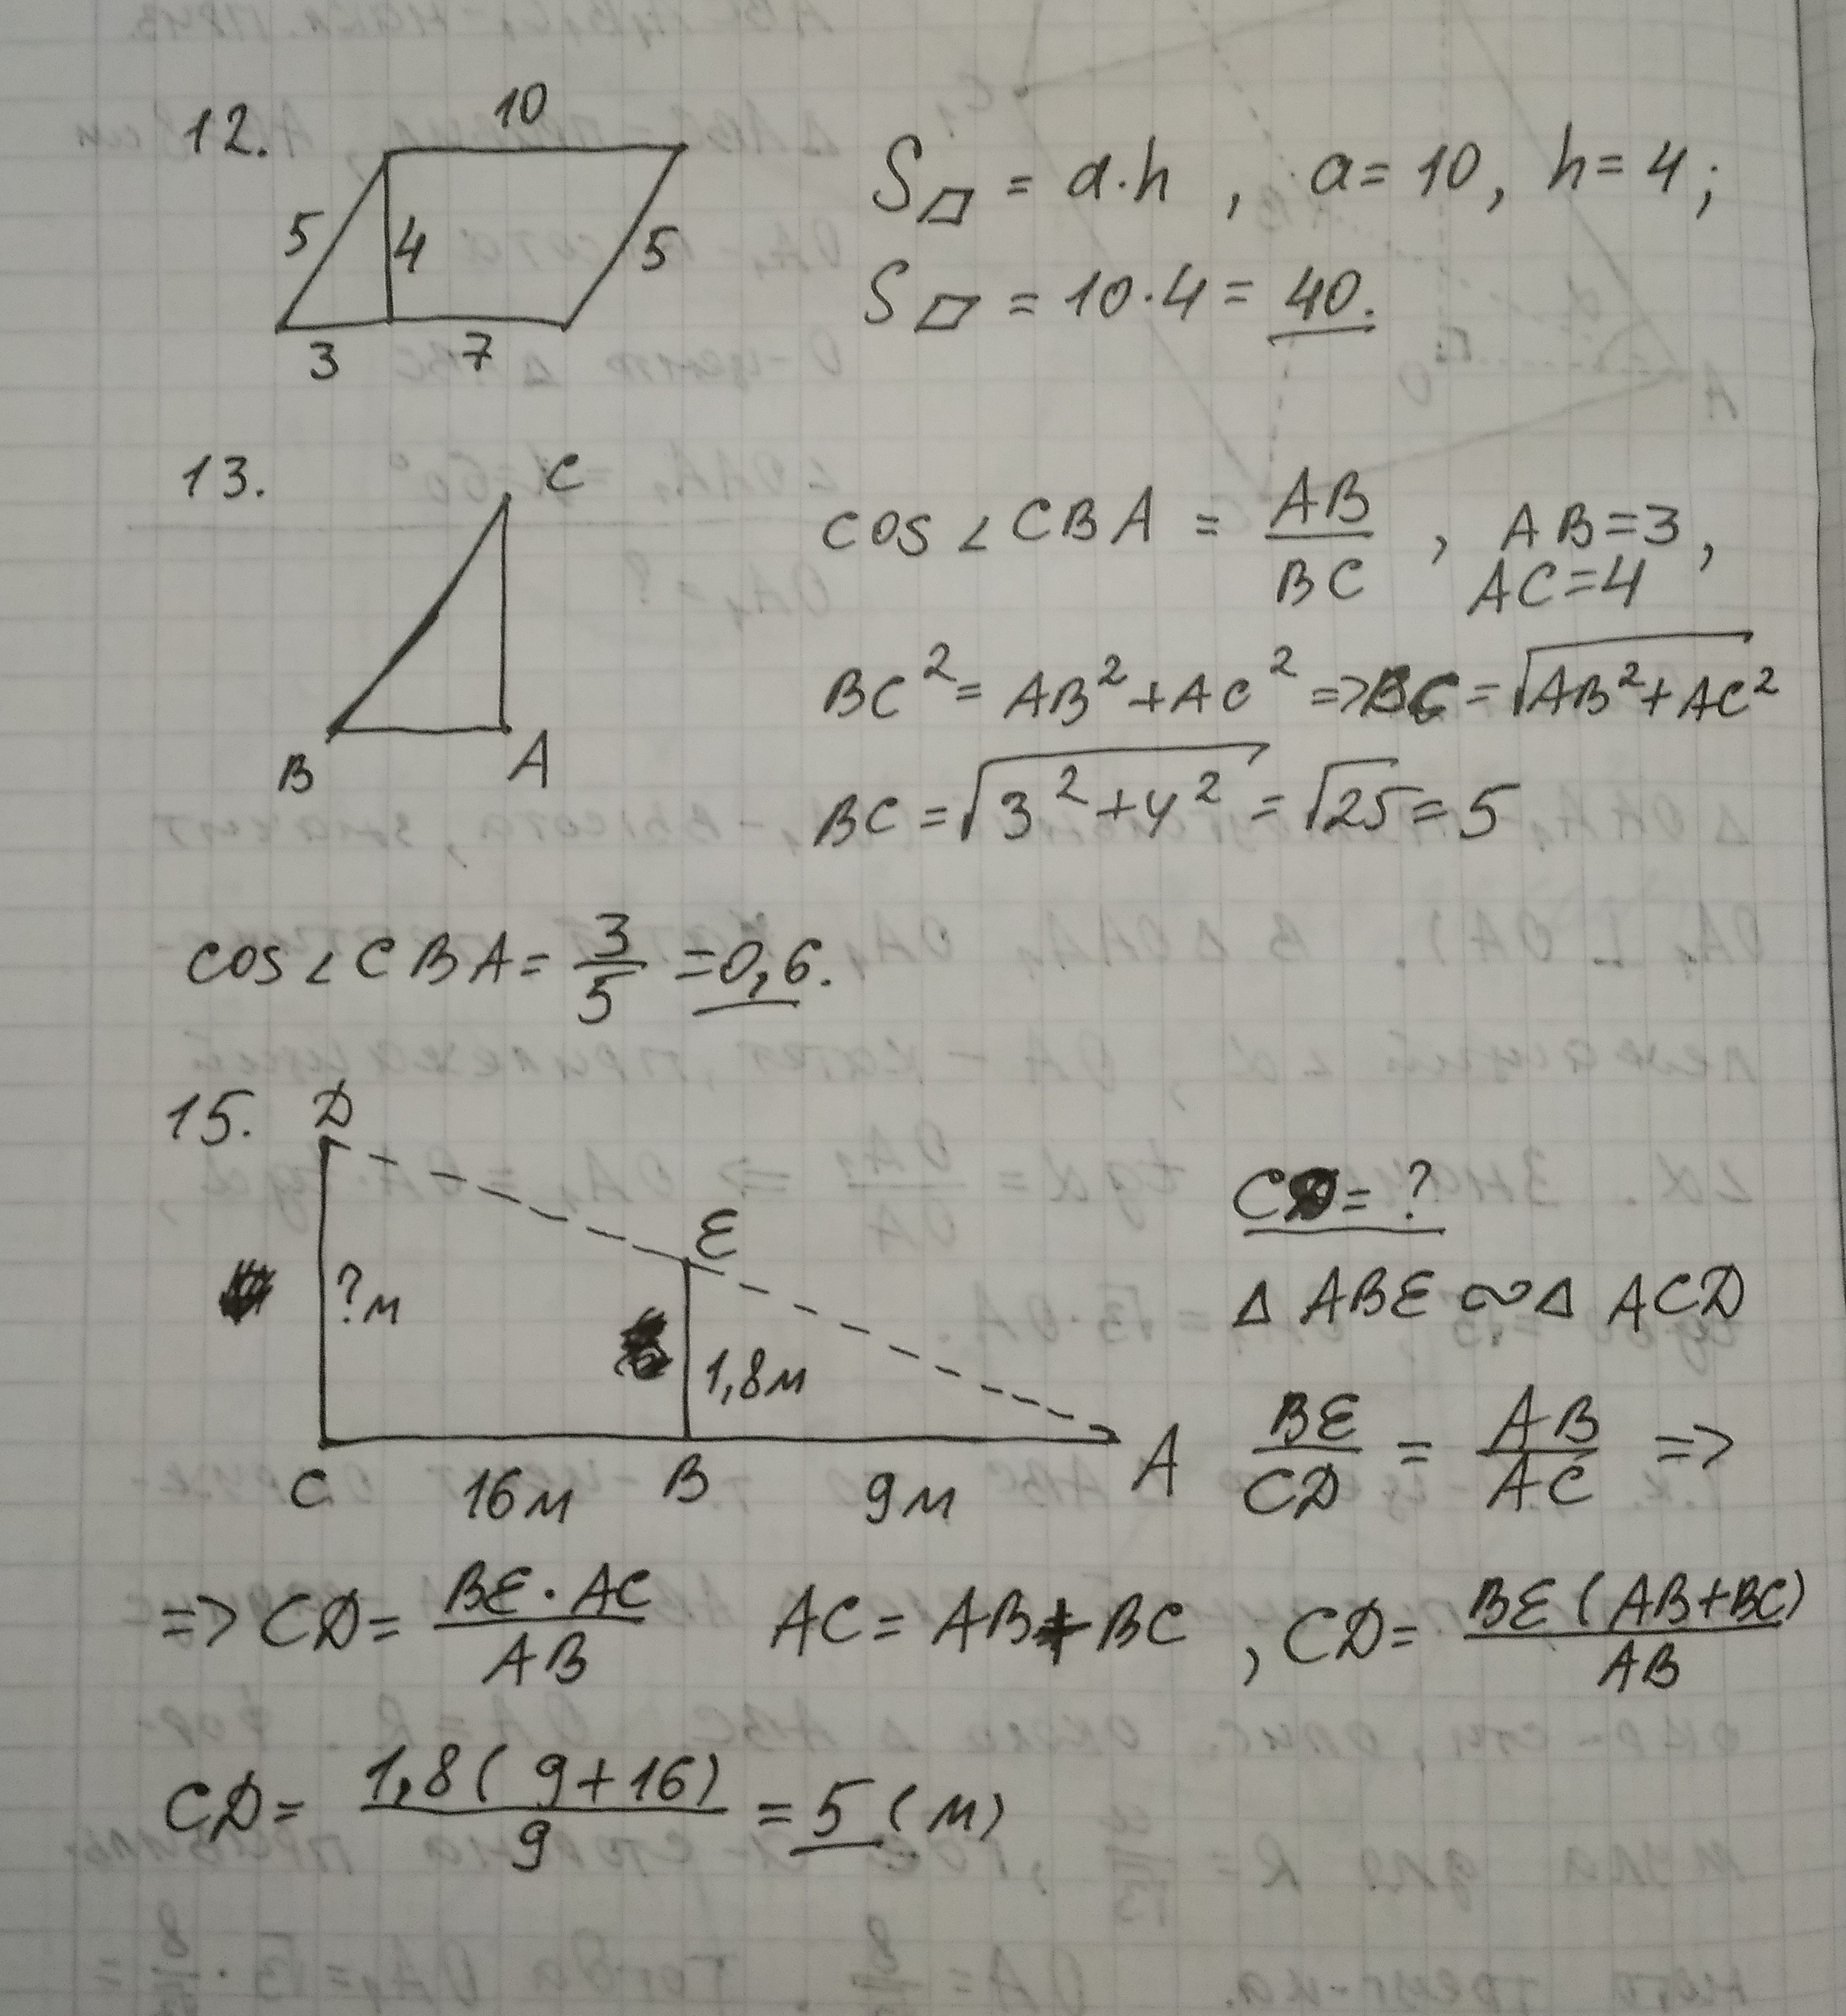 12.
10
5
4
5
3
7
S▱ = a·h, a=10, h=4;
S▱ = 10·4 = 40.
13.
C
B
A
cos∠CBA = AB/BC, AB=3,
AC=4
BC² = AB²+AC² => BC = √AB²+AC²
BC = √3²+4² = √25 = 5
cos∠CBA = 3/5 = 0,6.
15.
D
E
?м
1,8м
C
16м
B
9м
A
CD = ?
△ABE ∾ △ACD
BE/CD = AB/AC =>
=> CD = BE·AC/AB AC = AB+BC, CD = BE(AB+BC)/AB
CD = 1,8(9+16)/9 = 5 (м)